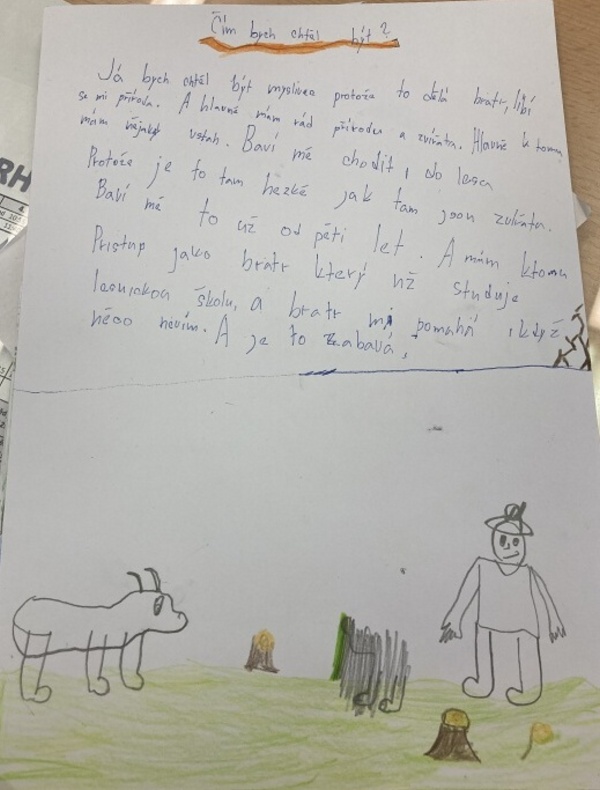 Čím bych chtěl být?
Já bych chtěl být myslivec protože to dělá bratr, líbí
se mi příroda. A hlavně mám rád přírodu a zvířata. Hlavně k tomu
mám nějaký vstah. Baví mě chodit i do lesa
Protože je to tam hezké jak tam jsou zvířata.
Baví mě to už od pěti let. A mám ktomu
Přístup jako bratr který už studuje
lesnickou školu, a bratr mi pomahá i když
něco nevím. A je to zabavá,
RH